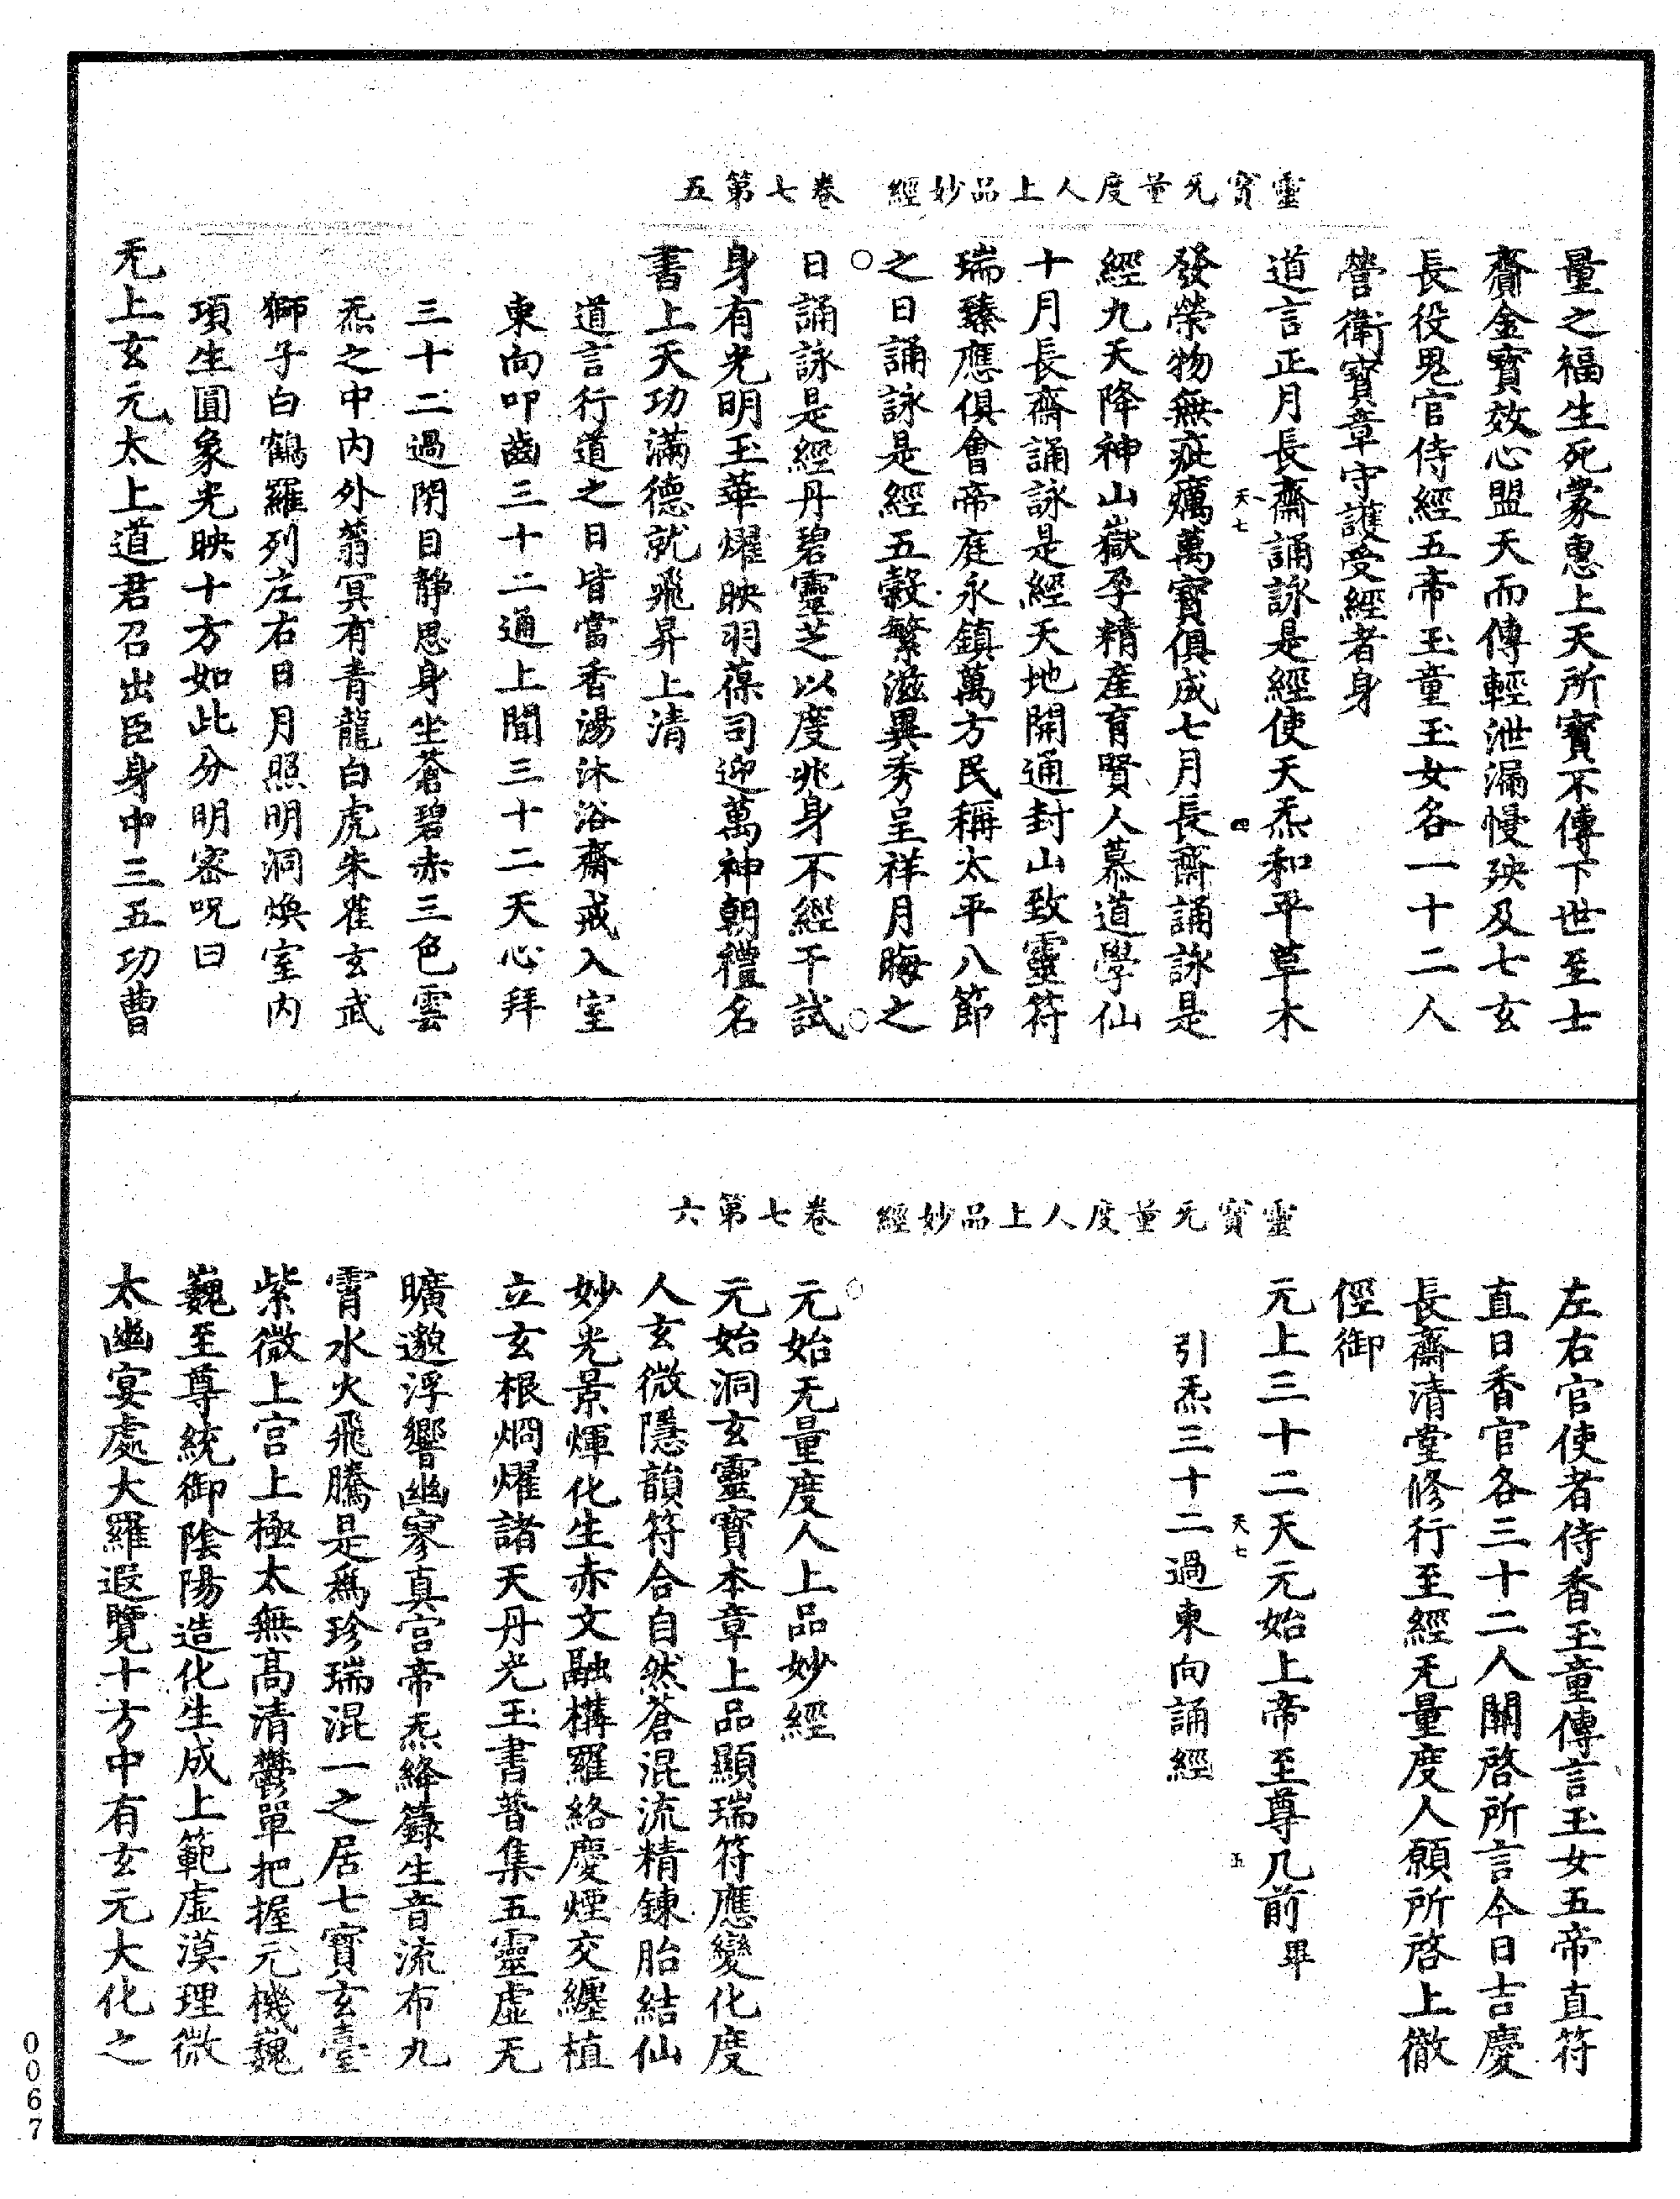 靈寶无量度人上品妙經 卷七第五
量之福生死蒙惠上天所寶不傳下世至士
齎金寶效心盟天而傳輕泄漏慢殃及七玄
長役鬼官侍經五帝玉童玉女各一十二人
營衛寶章守護受經者身
道言正月長齋誦詠是經使天炁和平草木
天七 四
發榮物無疵癘萬寶俱成七月長齋誦詠是
經九天降神山嶽孕精產育賢人慕道學仙
十月長齋誦詠是經天地開通封山致靈符
瑞臻應俱會帝庭永鎮萬方民稱太平八節
之日誦詠是經五穀繁滋異秀呈祥月晦之
日誦詠是經丹碧靈芝以度兆身不經干試
身有光明玉華燿映羽葆司迎萬神朝禮名
書上天功滿德就飛昇上清
道言行道之日皆當香湯沐浴齋戒入室
東向叩齒三十二通上聞三十二天心拜
三十二過閉目靜思身坐蒼碧赤三色雲
炁之中內外蓊冥有青龍白虎朱雀玄武
獅子白鶴羅列左右日月照明洞煥室內
項生圓象光映十方如此分明密呪曰
无上玄元太上道君召出臣身中三五功曹
靈寶无量度人上品妙經 卷七第六
左右官使者侍香玉童傳言玉女五帝直符
直日香官各三十二人關啓所言今日吉慶
長齋清堂修行至經无量度人願所啓上徹
徑御
元上三十二天元始上帝至尊几前畢
天七 五
引炁三十二過東向誦經
元始无量度人上品妙經
元始洞玄靈寶本章上品顯瑞符應變化度
人玄微隱韻符合自然蒼混流精鍊胎結仙
妙光景煇化生赤文融構羅絡慶煙交纏植
立玄根烱燿諸天丹光玉書普集五靈虛无
曠邈浮響幽寥真宮帝炁絳籙生音流布九
霄水火飛騰是為珍瑞混一之居七寶玄臺
紫微上宮上極太無高清鬱單把握元機巍
巍至尊統御陰陽造化生成上範虛漠理微
太幽宴處大羅遐覽十方中有玄元大化之
0067